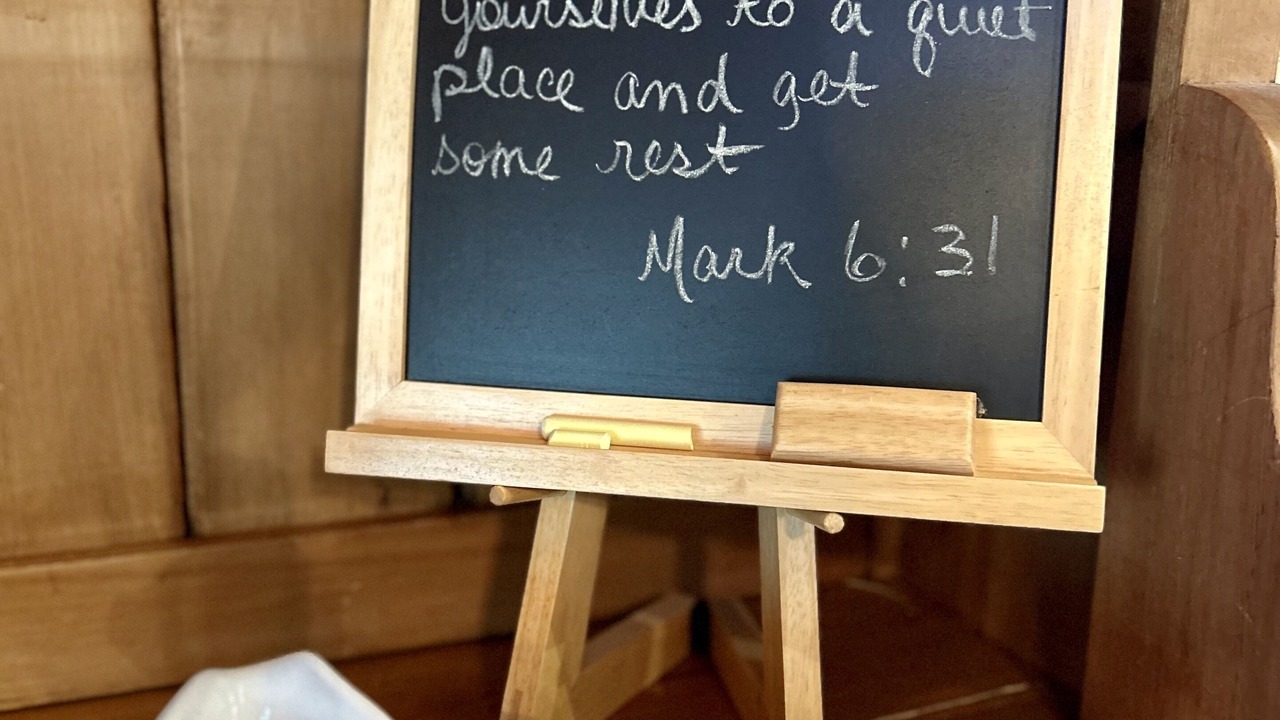 yourselves to a quiet
place and get
some rest
Mark 6:31